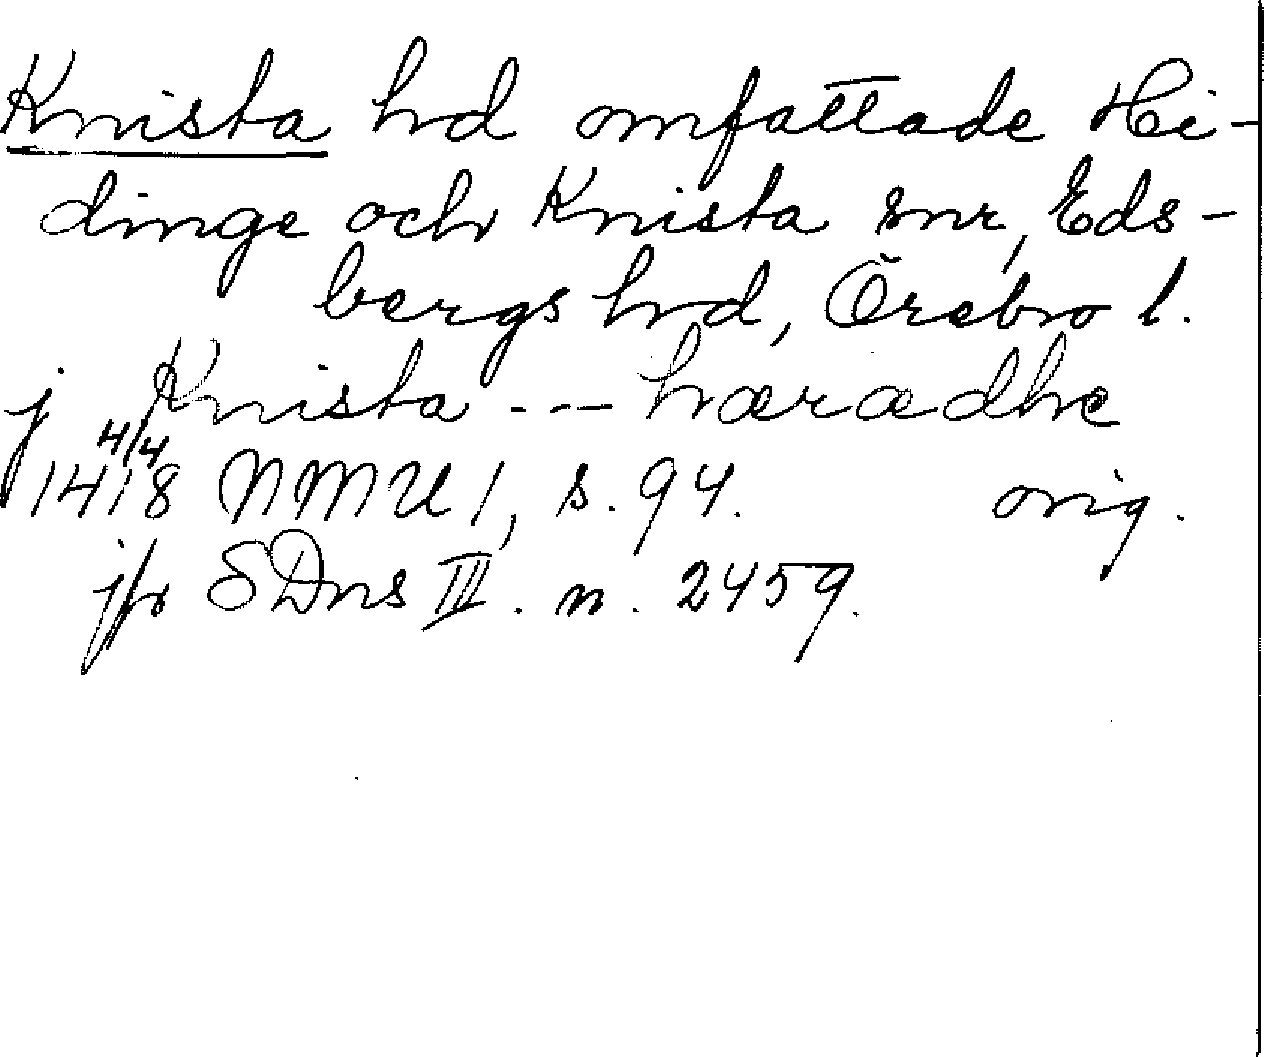 Knista hd omfattade Hi-
dinge och Knista snr, Eds-
bergs hrd, Örebro l.
j Knista --- hæradhe
4/4
1418 NMU 1, s. 94. orig.
jfr SDns III. n. 2459.